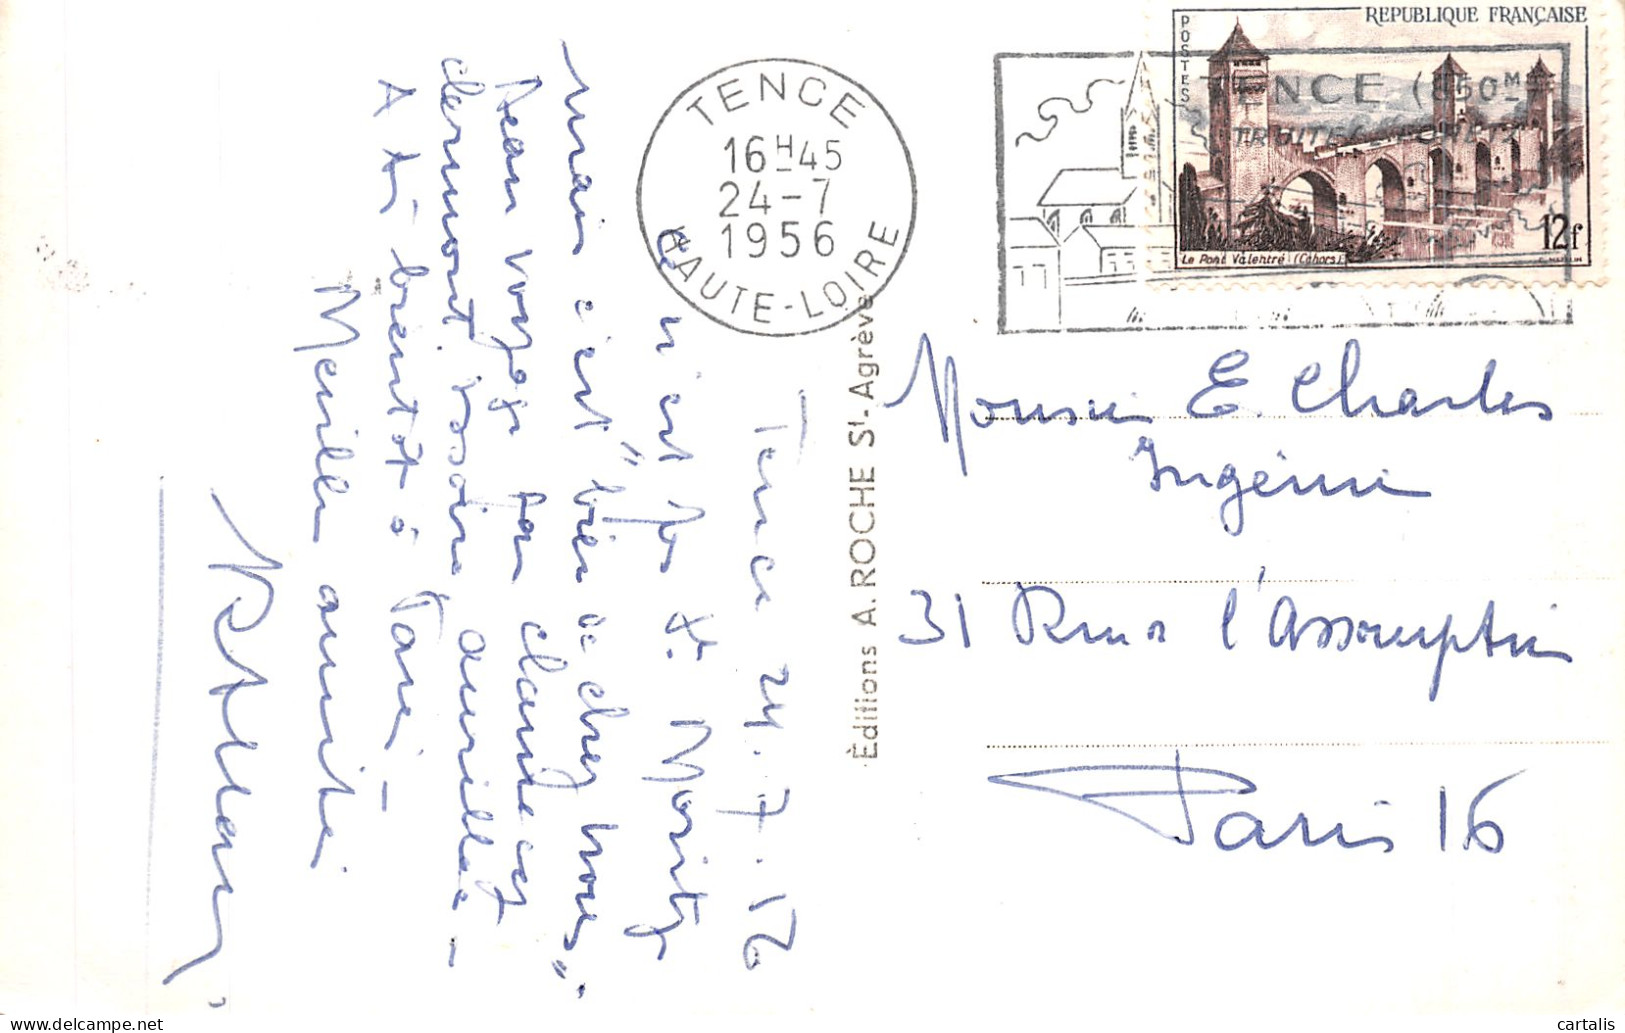 REPUBLIQUE FRANÇAISE
POSTES
12f
Le Pont Valentré (Cahors)
TENCE (850M)
TENCE
16H45
24-7
1956
HAUTE-LOIRE
Éditions A. ROCHE St-Agrève
Tence 24.7.56
ce n'est pas St. Moritz
mais c'est "bien de chez nous".
Beau voyage par
Clermont, Issoire, aurillac -
A très bientôt à Paris -
Meilleures amitiés
Monsieur E. Charles
Ingénieur
31 Rue de l'Assomption
Paris 16
cartalis
www.delcampe.net